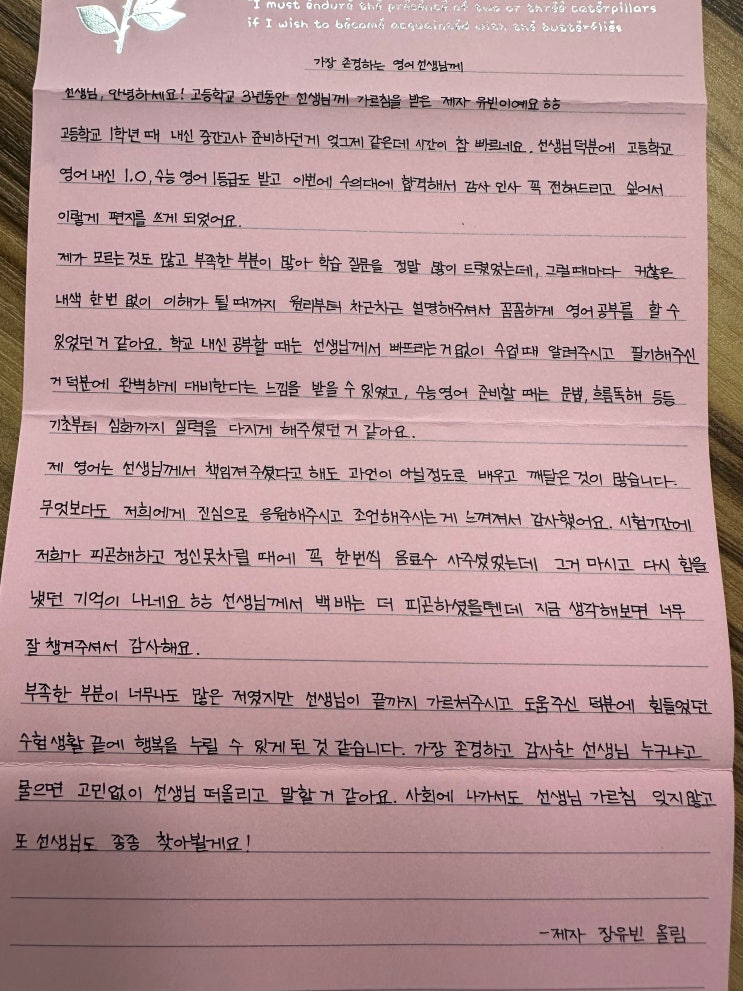 "I must endure the presence of two or three caterpillars
if I wish to become acquainted with the butterflies
가장 존경하는 영어선생님께
선생님, 안녕하세요! 고등학교 3년동안 선생님께 가르침을 받은 제자 유빈이예요 ㅎㅎ
고등학교 1학년 때 내신 중간고사 준비하던게 엊그제 같은데 시간이 참 빠르네요. 선생님덕분에 고등학교
영어내신 1.0, 수능 영어 1등급도 받고 이번에 수의대에 합격해서 감사 인사 꼭 전해드리고 싶어서
이렇게 편지를 쓰게 되었어요.
제가 모르는것도 많고 부족한 부분이 많아 학습 질문을 정말 많이 드렸었는데, 그럴때마다 귀찮은
내색 한번 없이 이해가 될 때까지 원리부터 차근차근 설명해주셔서 꼼꼼하게 영어공부를 할 수
있었던거 같아요. 학교 내신공부할 때는 선생님께서 빠뜨리는거없이 수업때 알려주시고 필기해주신
거 덕분에 완벽하게 대비한다는 느낌을 받을 수 있었고, 수능영어 준비할 때는 문법, 흐름독해 등등
기초부터 심화까지 실력을 다지게 해주셨던 거 같아요.
제 영어는 선생님께서 책임져주셨다고 해도 과언이 아닐정도로 배우고 깨달은 것이 많습니다.
무엇보다도 저희에게 진심으로 응원해주시고 조언해주시는게 느껴져서 감사했어요. 시험기간에
저희가 피곤해하고 정신못차릴 때에 꼭 한번씩 음료수 사주셨었는데 그거 마시고 다시 힘을
냈던 기억이 나네요 ㅎㅎ 선생님께서 백배는 더 피곤하셨을텐데 지금 생각해보면 너무
잘 챙겨주셔서 감사해요.
부족한 부분이 너무나도 많은 저였지만 선생님이 끝까지 가르쳐주시고 도움주신 덕분에 힘들었던
수험생활 끝에 행복을 누릴 수 있게된 것 같습니다. 가장 존경하고 감사한 선생님 누구냐고
물으면 고민없이 선생님 떠올리고 말할거 같아요. 사회에 나가서도 선생님 가르침 잊지않고
또 선생님도 종종 찾아뵐게요!
-제자 장유빈 올림